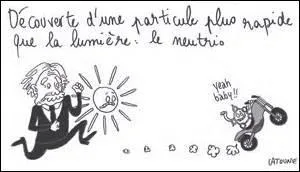 Découverte d'une particule plus rapide
que la lumière : le neutrio
yeah
baby!!
LATOUNE